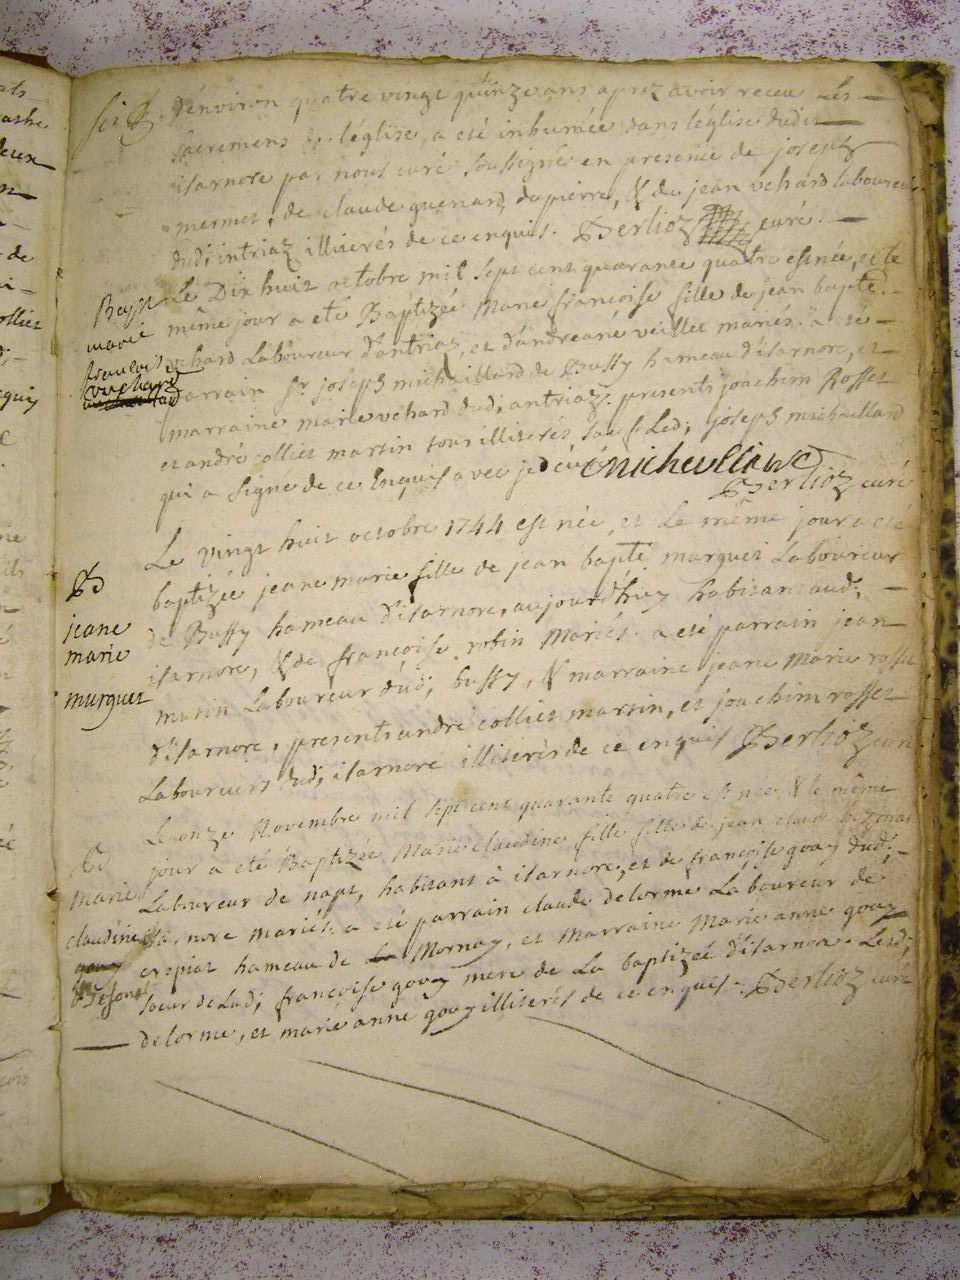 d'environ quatre vingt quinze ans aprez avoir receu Les
sacremens de l'église, a eté inhumée dans l'église dudit
isarnore par nous curé soussigné en presence de joseph
mermet, de claude guenard, du pierre, & du jean vchard laboureurs
dud; intriaz illiterés de ce enquis. Berlioz curé.
Bapt
marie
francoise
vuchard
Le Dix huit octobre mil sept cent quarante quatre est née, et le
même jour a eté Baptizée Marie françoise fille de jean bapte
vchard Laboureur d'antriaz, et d'andreané veillet mariés. a eté
parrain Sr joseph michaillard de Bussy hameau d'isarnore, et
marraine marie vchard dud; antriaz. presents joachim Rosset
et andré colliet martin tous illiterés, sauf Led; joseph michaillard
qui a signé de ce Enquis avec je dt curé Michaillard
Berlioz curé
B
jeane
marie
marguet
Le vingt huit octobre 1744 est née, et Le même jour a eté
baptizée jeane marie fille de jean bapte marguet Laboureur
de Bussy hameau d'isarnore, aujourd'huy habitant aud;
isarnore, & de françoise robin Mariés. a eté parrain jean
matin Laboureur dud; bussy, & marraine jeane Marie rosset
d'isarnore, presents andré colliet martin, et joachim rosset
Laboureurs dud; isarnore illiterés de ce enquis Berlioz curé
B
marie
claudine
gouy
Le onze Novembre mil sept cent quarante quatre est née & le même
jour a eté Baptizée Marie claudine fille fille de jean claude
Laboureur de napt, habitant à isarnore, et de françoise gouy dud;
isarnore mariés. a eté parrain claude delorme Laboureur de
crepiat hameau de La Mornay, et Marraine Marie anne gouy
soeur de Lad; françoise gouy mere de La baptizée d'isarnore. Lesd;
delorme, et marie anne gouy illiterés de ce enquis. Berlioz curé